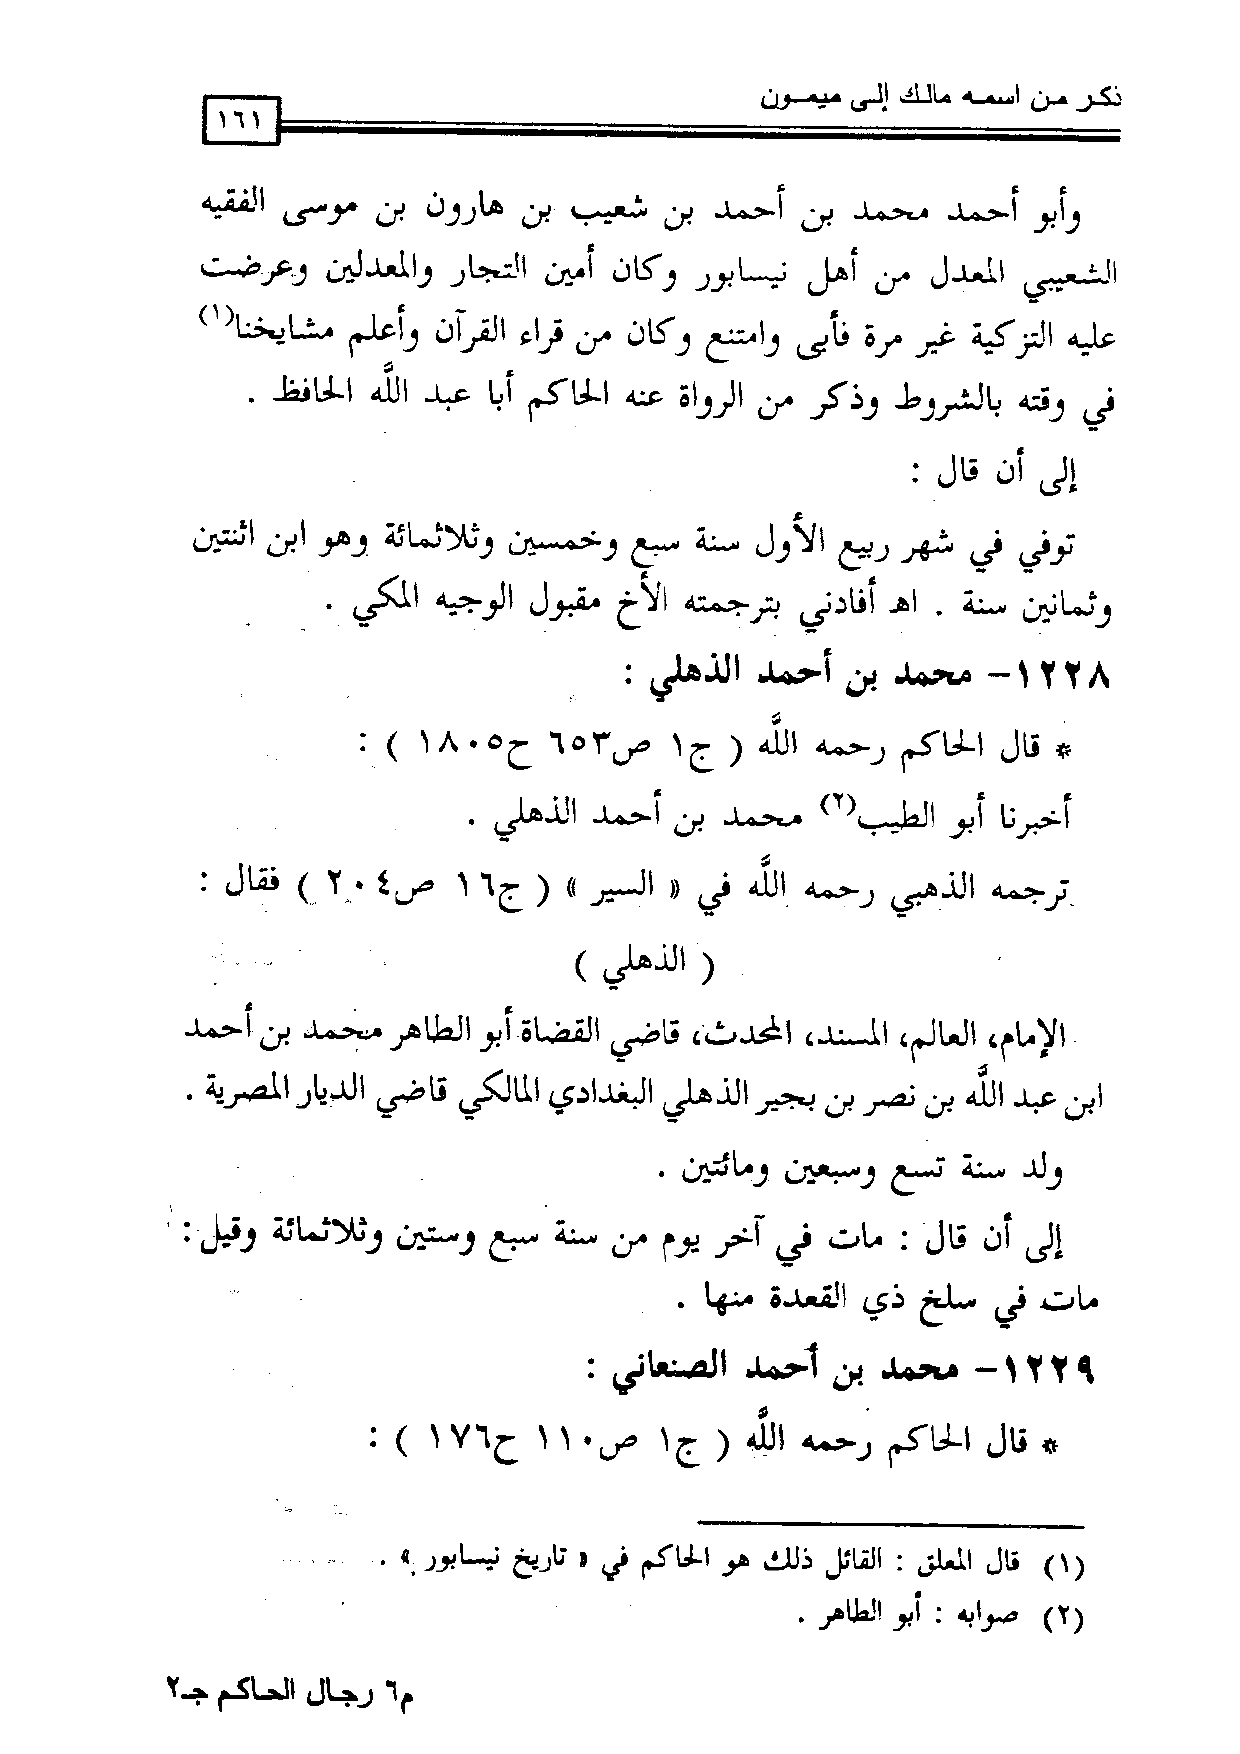 ذكر من اسمه مالك إلى ميمون
١٦١
وأبو أحمد محمد بن أحمد بن شعيب بن هارون بن موسى الفقيه
الشعيبي المعدل من أهل نيسابور وكان أمين التجار والمعدلين وعرضت
عليه التزكية غير مرة فأبى وامتنع وكان من قراء القرآن وأعلم مشايخنا(١)
في وقته بالشروط وذكر من الرواة عنه الحاكم أبا عبد الله الحافظ .
إلى أن قال :
توفي في شهر ربيع الأول سنة سبع وخمسين وثلاثمائة وهو ابن اثنتين
وثمانين سنة . اهـ أفادني بترجمته الأخ مقبول الوجيه المكي .
١٢٢٨- محمد بن أحمد الذهلي :
* قال الحاكم رحمه الله ( ج١ ص٦٥٣ ح١٨٠٥ ) :
أخبرنا أبو الطيب(٢) محمد بن أحمد الذهلي .
ترجمه الذهبي رحمه الله في « السير » ( ج١٦ ص٢٠٤ ) فقال :
( الذهلي )
الإمام، العالم، المسند، المحدث، قاضي القضاة أبو الطاهر محمد بن أحمد
ابن عبد الله بن نصر بن بجير الذهلي البغدادي المالكي قاضي الديار المصرية .
ولد سنة تسع وسبعين ومائتين .
إلى أن قال : مات في آخر يوم من سنة سبع وستين وثلاثمائة وقيل :
مات في سلخ ذي القعدة منها .
١٢٢٩- محمد بن أحمد الصنعاني :
* قال الحاكم رحمه الله ( ج١ ص١١٠ ح١٧٦ ) :
(١) قال المعلق : القائل ذلك هو الحاكم في « تاريخ نيسابور » .
(٢) صوابه : أبو الطاهر .
م٦ رجال الحاكم جـ٢